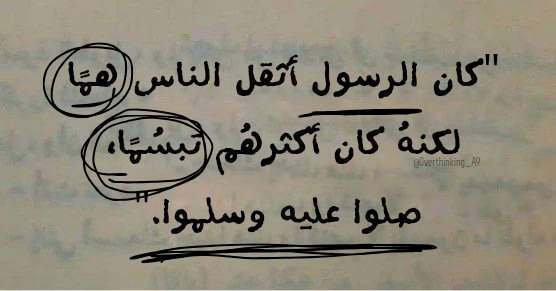 "كان الرسول أثقل الناس همًا
لكنهُ كان أكثرهُم تبسُمًا،
@Overthinking_A9
صلوا عليه وسلموا."